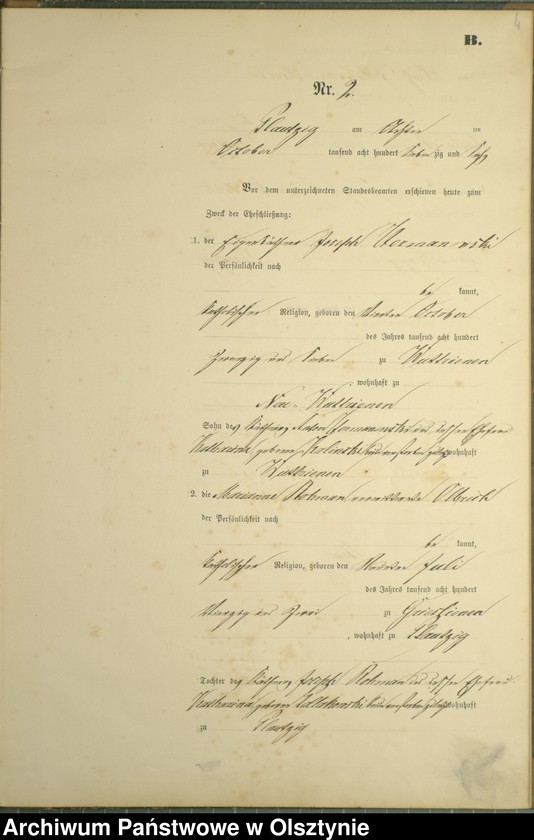 4
B.
Nr. 2.
Plautzig am Achten ten
October tausend acht hundert sieben zig und sechs
Vor dem unterzeichneten Standesbeamten erschienen heute zum
Zweck der Eheschließung:
1. der Eigenkäthner Joseph Hermanowski
der Persönlichkeit nach
be kannt,
katholischer Religion, geboren den October
des Jahres tausend acht hundert
zwanzig und sieben zu Kuttrienen
, wohnhaft zu
Neu-Kuttrienen
Sohn des Käthners Hermanowski und dessen Ehefrau
Katharina geborene wohnhaft
zu Kuttrienen
2. die Marianna Rohman verwittwete Olbrich
der Persönlichkeit nach
be kannt,
katholischer Religion, geboren den Juli
des Jahres tausend acht hundert
vierzig und zwei zu
, wohnhaft zu Plautzig
Tochter des Käthners Joseph Rohman und dessen Ehefrau
Katharina geborene wohnhaft
zu Plautzig
Archiwum Państwowe w Olsztynie